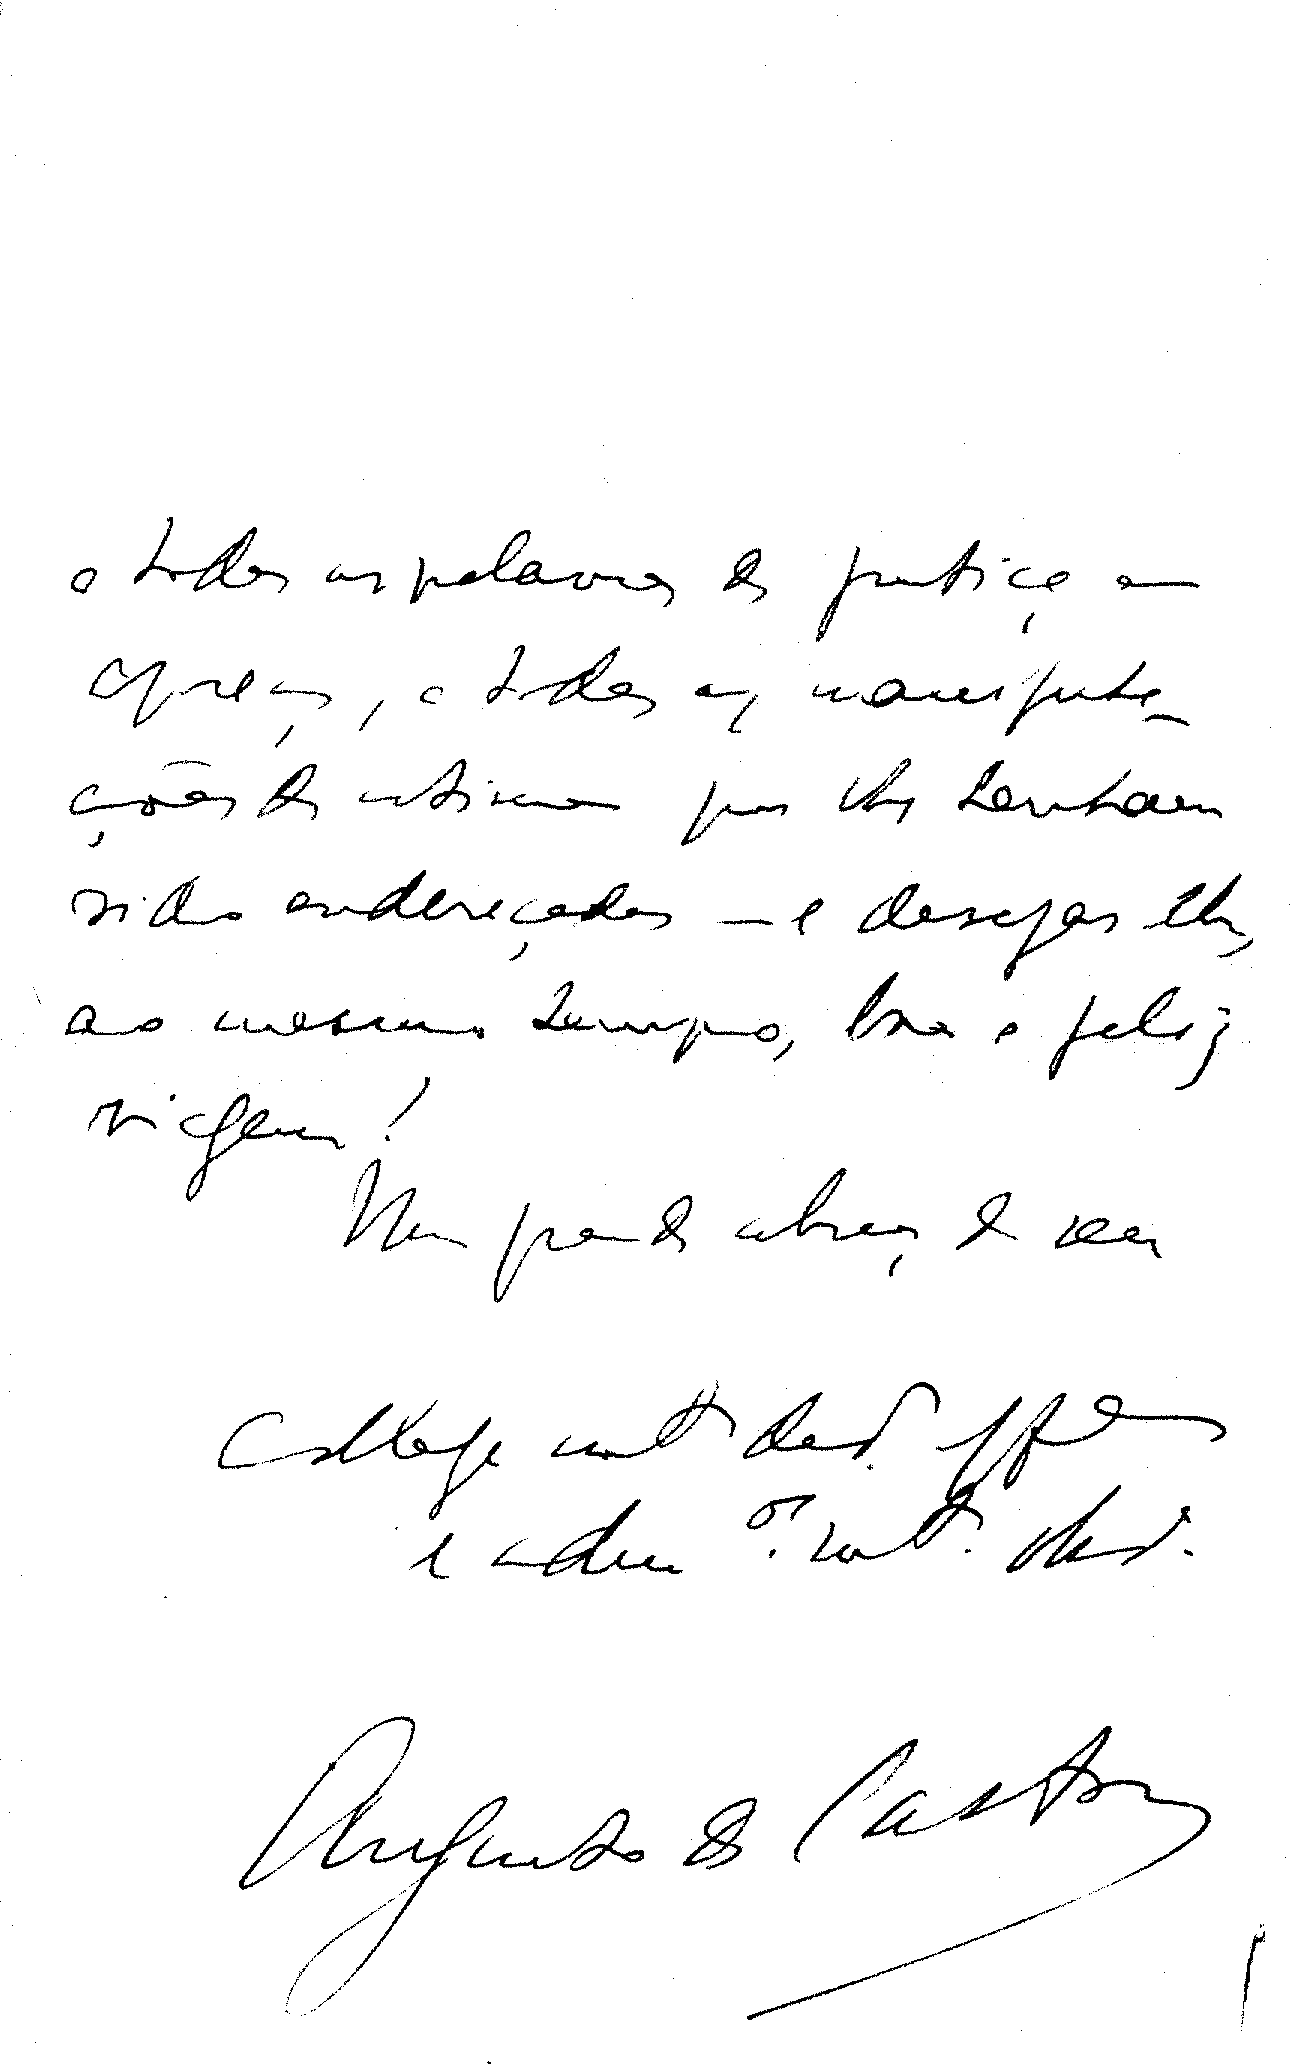 a todas as palavras de justiça e
apreço, a todas as manifesta-
ções de estima que lhe tenham
sido endereçadas — e desejar-lhe,
ao mesmo tempo, boa e feliz
viagem!
Um grande abraço do seu
Collega mt.º ded.
e adm.ºʳ mt.º obd.º
Augusto de Castro